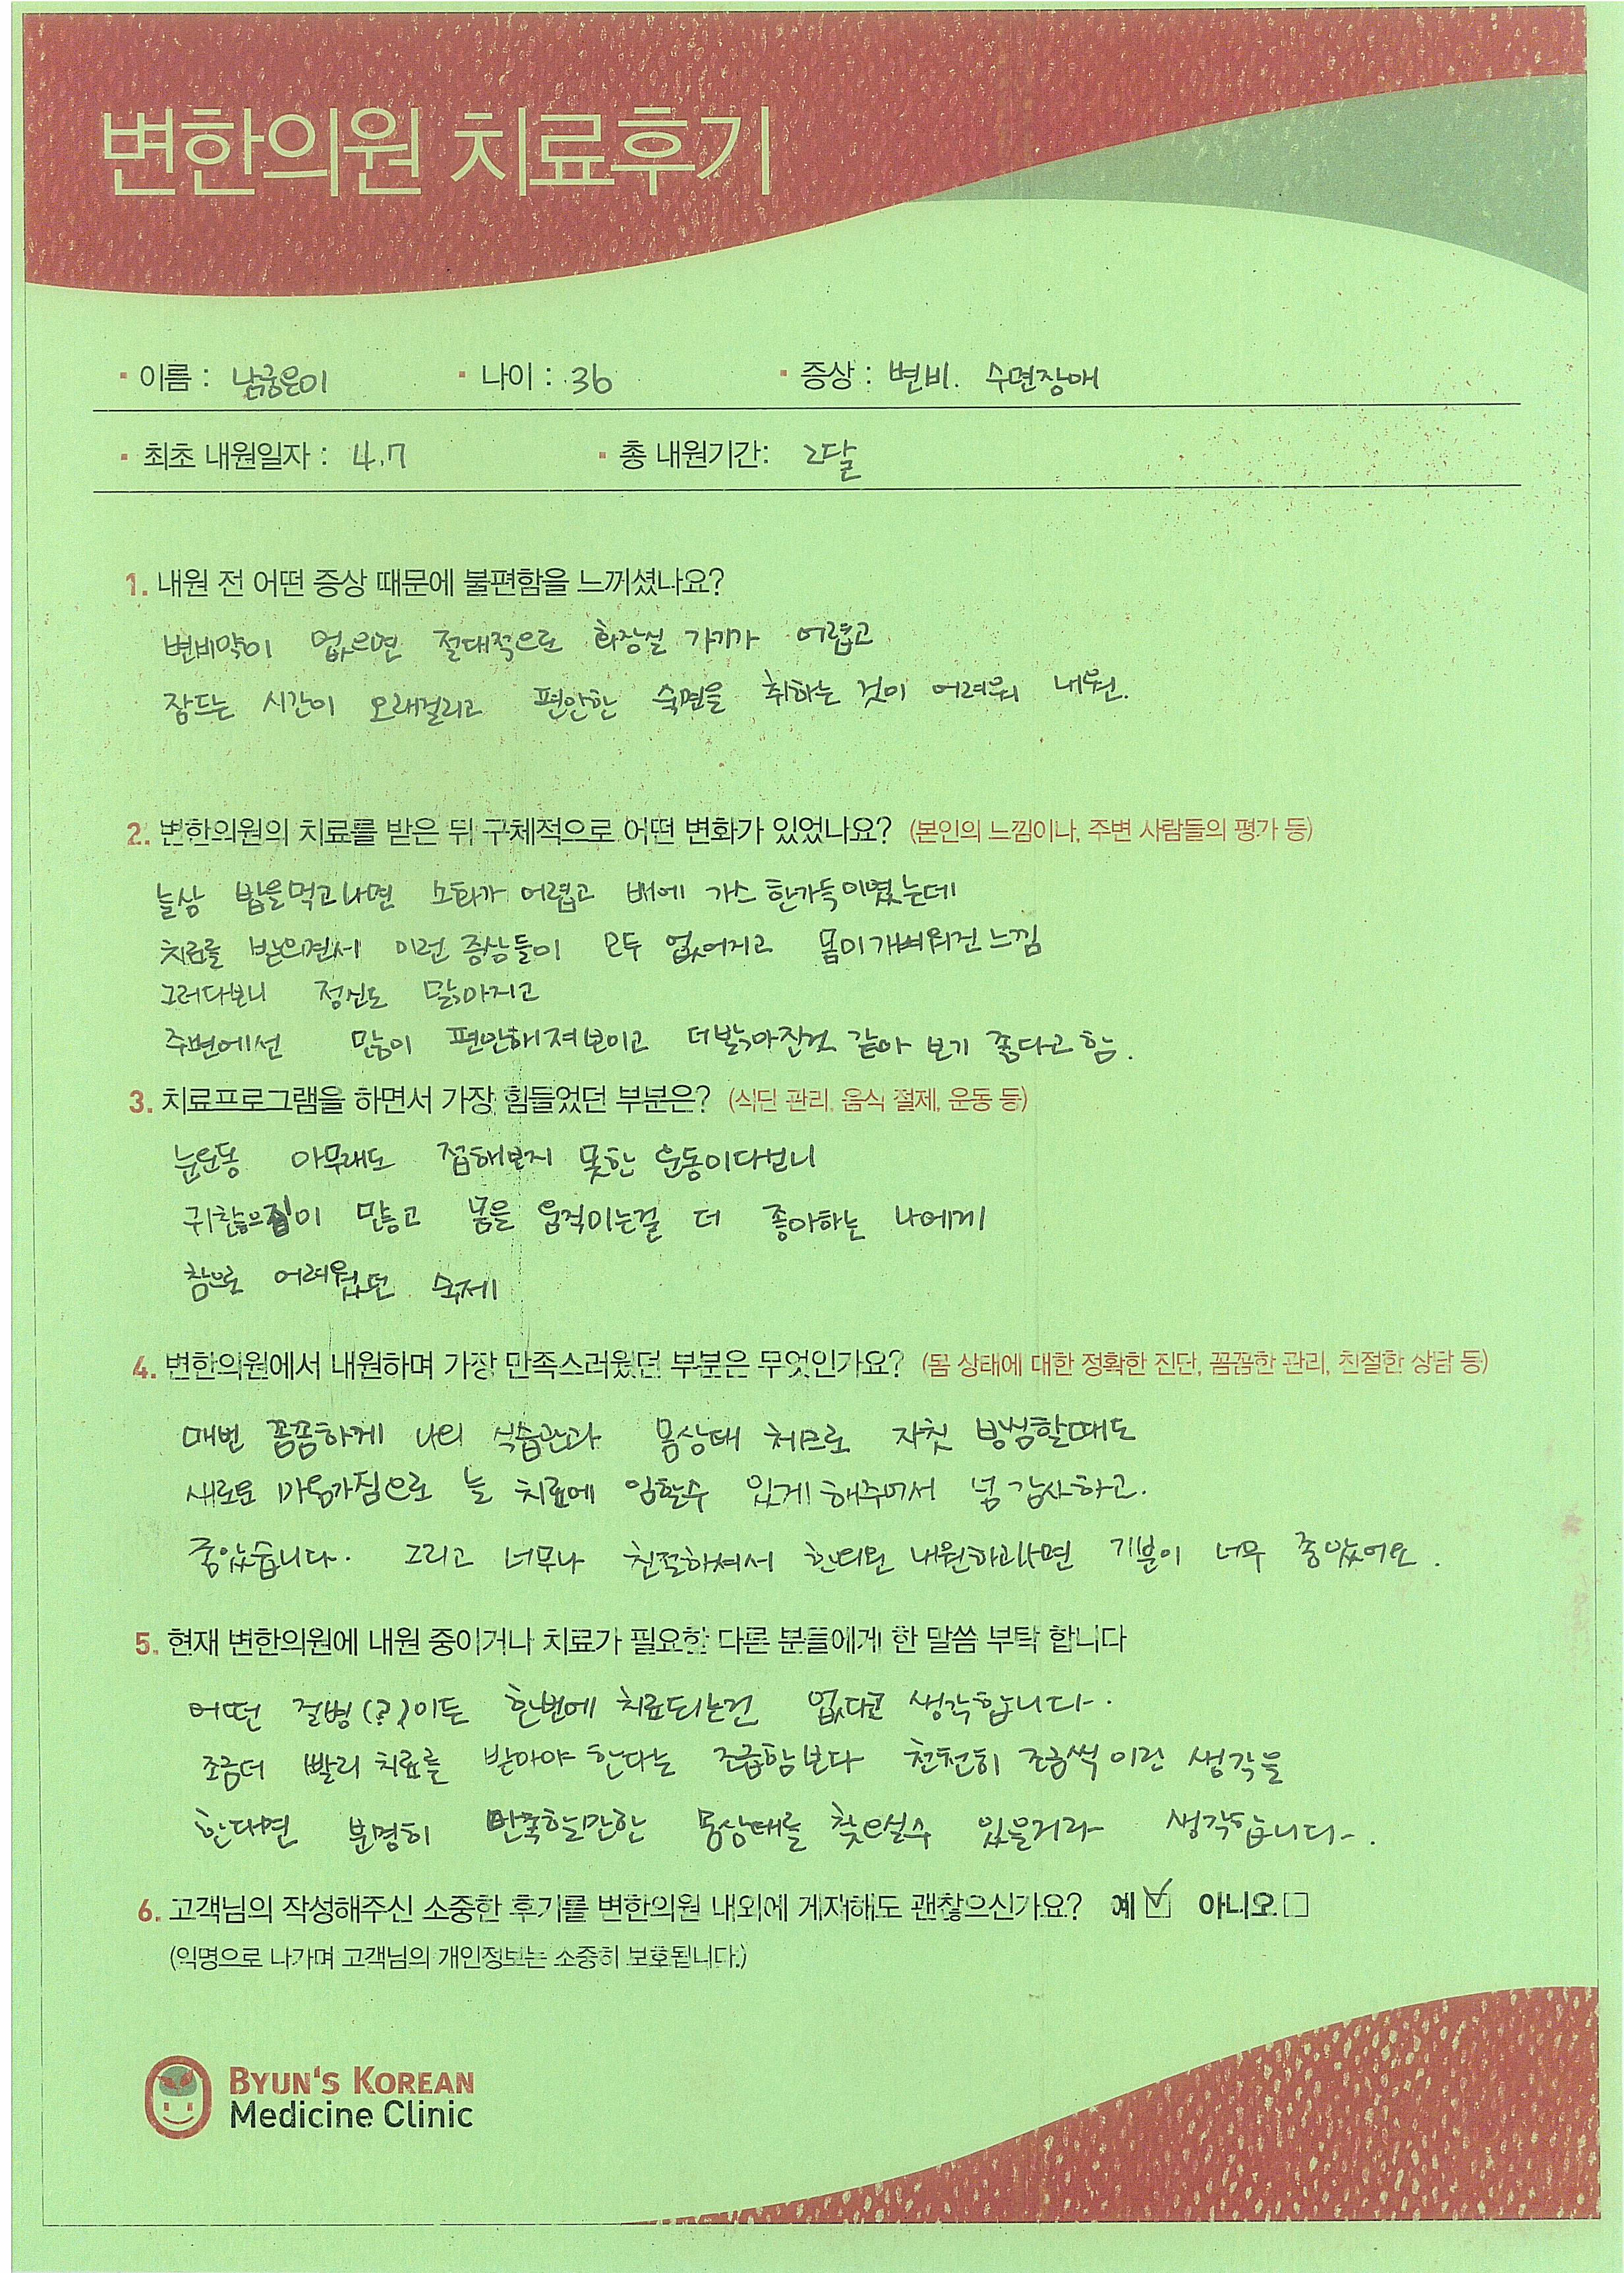 변한의원 치료후기
이름 : 남궁은이 나이 : 36 증상 : 변비. 수면장애
최초 내원일자 : 4.7 총 내원기간: 2달
1. 내원 전 어떤 증상 때문에 불편함을 느끼셨나요?
변비약이 없으면 절대적으로 화장실 가기가 어렵고
잠드는 시간이 오래걸리고 편안한 숙면을 취하는 것이 어려워 내원.
2. 변한의원의 치료를 받은 뒤 구체적으로 어떤 변화가 있었나요? (본인의 느낌이나, 주변 사람들의 평가 등)
늘상 밥을먹고나면 소화가 어렵고 배에 가스 한가득이였는데
치료를 받으면서 이런 증상들이 모두 없어지고 몸이가벼워진느낌
그러다보니 정신도 맑아지고
주변에선 많이 편안해져보이고 더밝아진것 같아 보기 좋다고 함.
3. 치료프로그램을 하면서 가장 힘들었던 부분은? (식단 관리, 음식 절제, 운동 등)
눈운동 아무래도 접해보지 못한 운동이다보니
귀찮으짐이 많고 몸을 움직이는걸 더 좋아하는 나에게
참으로 어려웠던 숙제
4. 변한의원에서 내원하며 가장 만족스러웠던 부분은 무엇인가요? (몸 상태에 대한 정확한 진단, 꼼꼼한 관리, 친절한 상담 등)
매번 꼼꼼하게 나의 식습관과 몸상태 체크로 자칫 방심할때도
새로운 마음가짐으로 늘 치료에 임할수 있게 해주어서 넘 감사하고.
좋았습니다. 그리고 너무나 친절하셔서 한의원 내원하고나면 기분이 너무 좋았어요.
5. 현재 변한의원에 내원 중이거나 치료가 필요한 다른 분들에게 한 말씀 부탁 합니다
어떤 질병(?)이든 한번에 치료되는건 없다고 생각합니다.
조금더 빨리 치료를 받아야 한다는 조급함보다 천천히 조금씩 이란 생각을
한다면 분명히 만족할만한 몸상태를 찾으실수 있을거라 생각합니다.
6. 고객님의 작성해주신 소중한 후기를 변한의원 내외에 게재해도 괜찮으신가요? 예 ☑ 아니오 □
(익명으로 나가며 고객님의 개인정보는 소중히 보호됩니다.)
BYUN'S KOREAN
Medicine Clinic